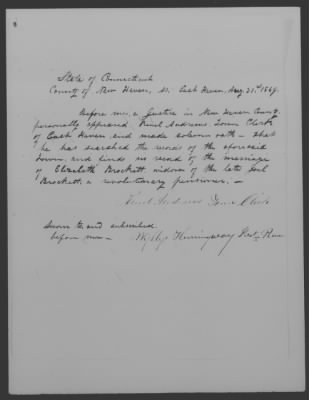 State of Connecticut
County of New Haven, ss. East Haven, Aug. 31st 1869.
Before me, a Justice in New Haven County,
personally appeared Ruel Andrews Town Clerk
of East Haven, and made solemn oath – that
he has searched the records of the aforesaid
Town, and finds no record of the marriage
of Elizabeth Brockett, widow of the late Joel
Brockett, a revolutionary pensioner. –
Ruel Andrews Town Clerk
Sworn to and subscribed
before me – Hemingway